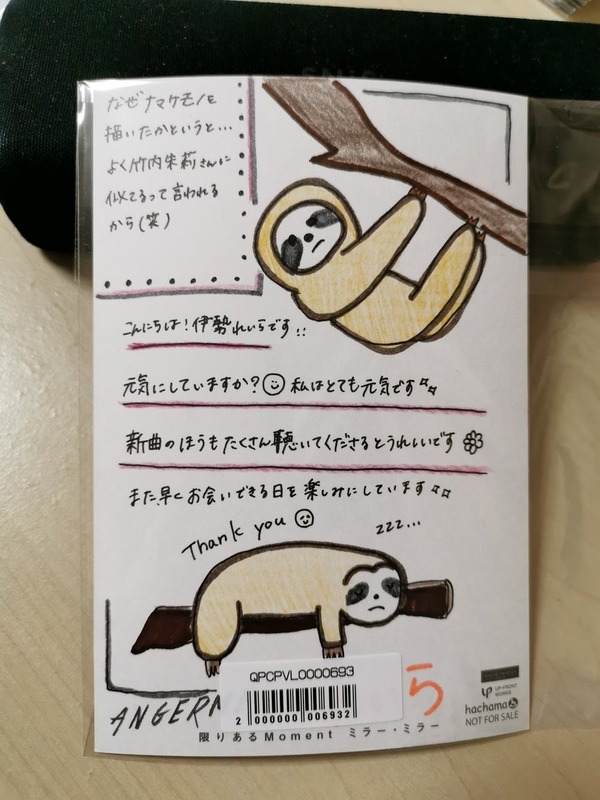 なぜナマケモノを
描いたかというと…
よく竹内朱莉さんに
似てるって言われる
から(笑)
こんにちは!伊勢れいらです!!
元気にしていますか?私はとても元気です
新曲のほうもたくさん聴いてくださるとうれしいです
また早くお会いできる日を楽しみにしています
Thank you
zzz...
QPCPVL0000693
2 000000 006932
ANGERM
ら
UP-FRONT WORKS
hachama
NOT FOR SALE
限りあるMoment ミラー・ミラー